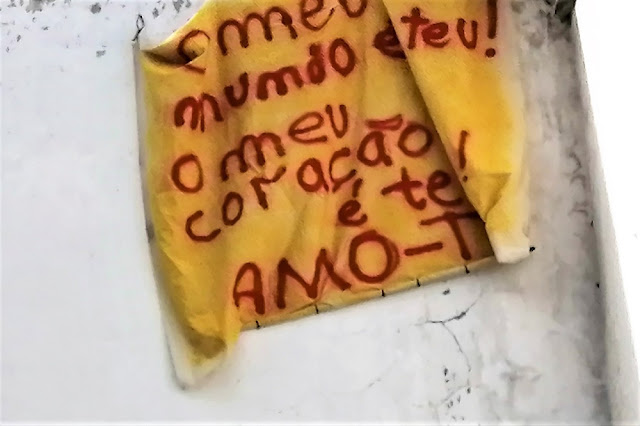 o meu
mundo é teu!
o meu
coração!
é te
AMO-T